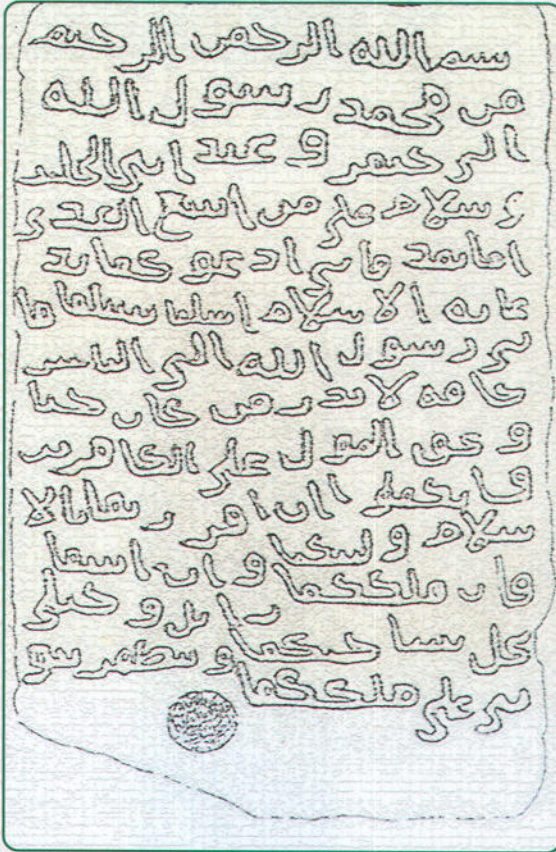 بسم الله الرحمن الرحيم
من محمد رسول الله
الى جيفر و عبد ابنى الجلند
ى سلام على من اتبع الهدى
اما بعد فانى ادعو كما بد
عاية الا سلام اسلما تسلما فا
نى رسول الله الى الناس
كافة لا نذر من كان حيا
و يحق القول على الكافرين
فا نكما ان اقر ر تما با لا
سلام و ليتكما و ان ابيتما
فا ن ملككما زا ئل و خيلى
تحل بسا حتكما و تظهر نبو
تى على ملككما